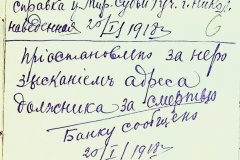 справка у Мир. Судьи 7 уч. г. Никол.
наведенная 20/I 1918 г.
6
приостановлено за неро
зысканiем адреса
должника за смертью
Банку сообщено
20/I/1918 г.